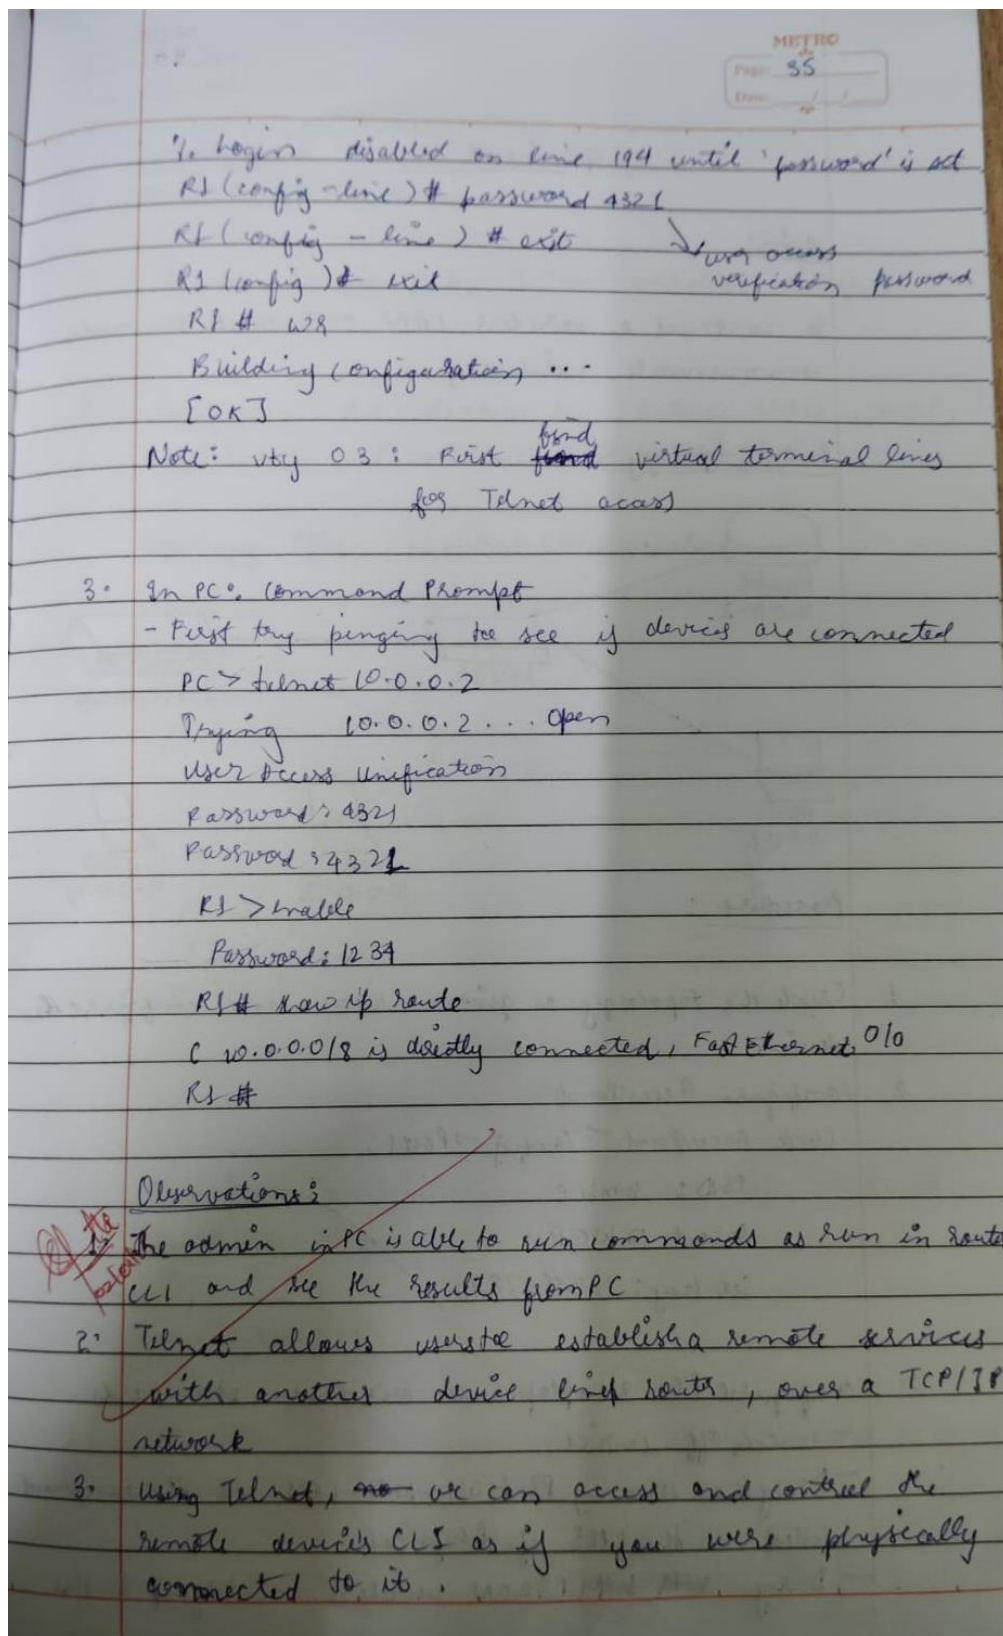 METRO
Page: 35
Date: / /
% Login disabled on line 194 until 'password' is set
R1 (config-line) # password 4321
R1 (config - line) # exit
user access
R1 (config) # exit
verification password
R1 # wr
Building configuration ...
[OK]
Note: vty 0 3 : First virtual terminal lines
for Telnet acass
3. In PC: Command Prompt
- First try pinging to see if devices are connected
PC > telnet 10.0.0.2
Trying 10.0.0.2 ... Open
User Access Unification
Password: 4321
Password: 4321
R1 > enable
Password: 1234
R1 # show ip route
C 10.0.0.0/8 is directly connected, FastEthernet 0/0
R1 #
Observations:
1. The admin in PC is able to run commands as run in route
CLI and see the results from PC
2. Telnet allows users to establish a remote services
with another device router, over a TCP/IP
network
3. Using Telnet, we can access and control the
remote device's CLI as if you were physically
connected to it.